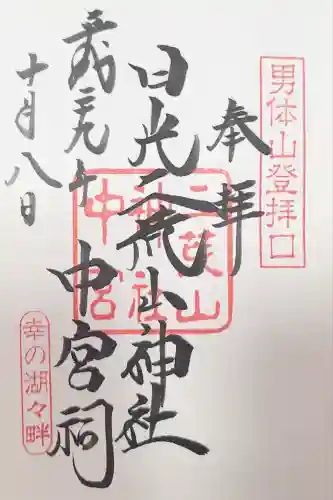 男体山登拝口
奉拝
日光二荒山神社
中宮祠
平成二九年
十月八日
二荒山
神社
中宮
幸の湖々畔